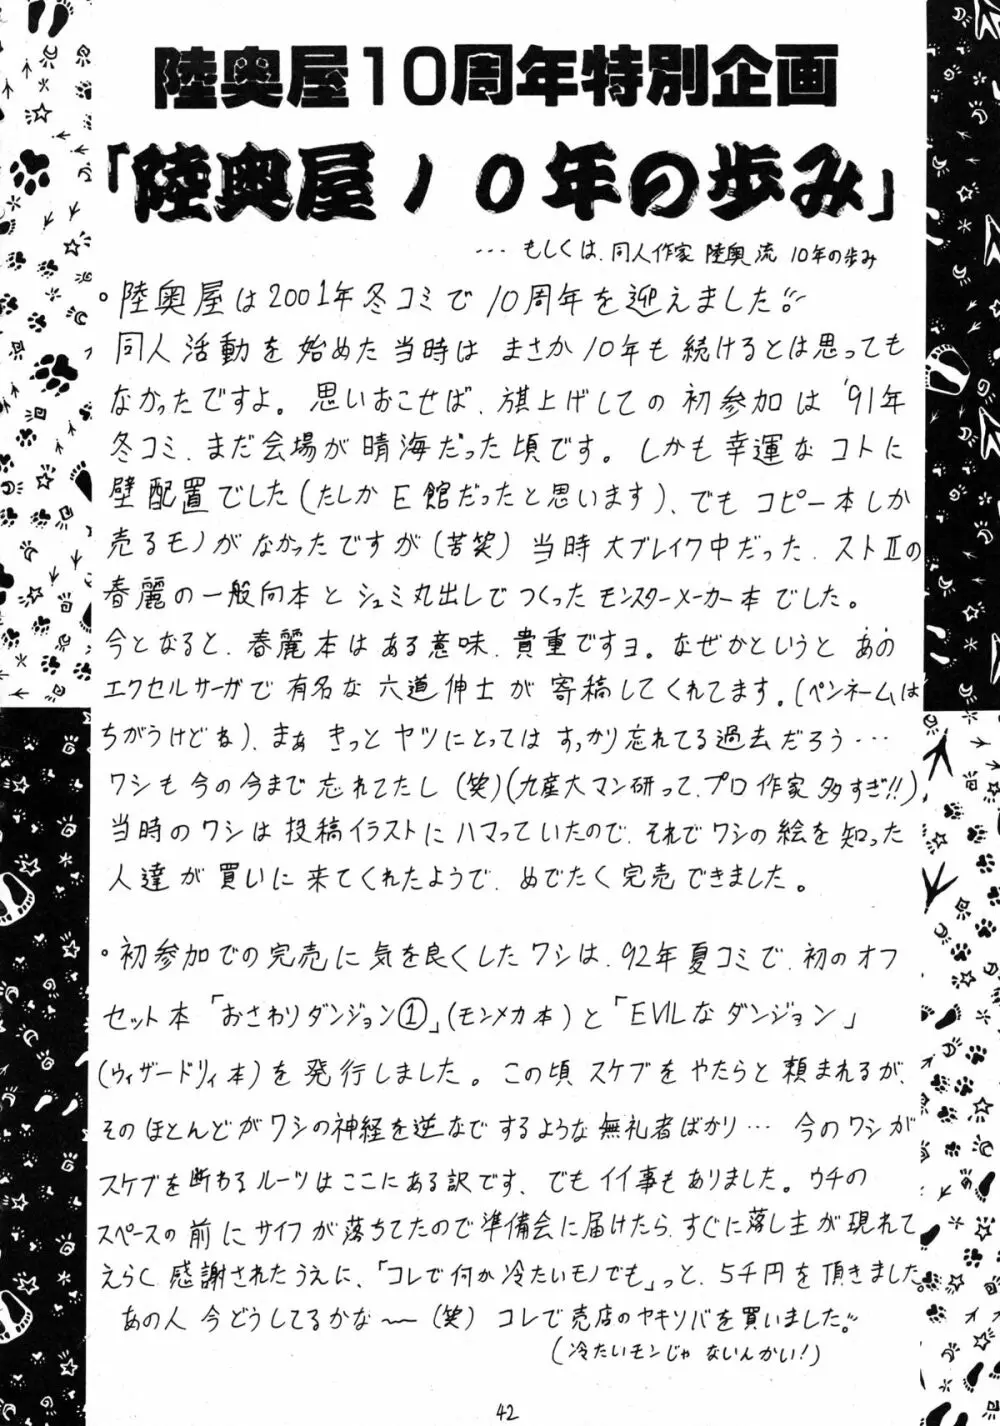 陸奥屋10周年特別企画
「陸奥屋10年の歩み」
…もしくは、同人作家 陸奥流 10年の歩み
。陸奥屋は2001年冬コミで10周年を迎えました!!
同人活動を始めた当時は まさか10年も続けるとは思っても
なかったですよ。思いおこせば、旗上げしての初参加は'91年
冬コミ、まだ会場が晴海だった頃です。しかも幸運なコトに
壁配置でした(たしかE館だったと思います)、でもコピー本しか
売るモノがなかったですが(苦笑)当時大ブレイク中だった、ストⅡの
春麗の一般向本とシュミ丸出しでつくったモンスターメーカー本でした。
今となると、春麗本はある意味、貴重ですヨ。なぜかというとあの
エクセルサーガで有名な六道伸士が寄稿してくれてます。(ペンネームは
ちがうけどね)、まぁ きっとヤツにとってはすっかり忘れてる過去だろう…
ワシも今の今まで忘れてたし(笑)(九産大マン研って、プロ作家多すぎ!!)
当時のワシは投稿イラストにハマっていたので、それでワシの絵を知った
人達が買いに来てくれたようで、めでたく完売できました。
。初参加での完売に気を良くしたワシは、92年夏コミで、初のオフ
セット本「おさわりダンジョン①」(モンメカ本)と「EVILなダンジョン」
(ウィザードリィ本)を発行しました。この頃スケブをやたらと頼まれるが、
そのほとんどがワシの神経を逆なでするような無礼者ばかり… 今のワシが
スケブを断わるルーツはここにある訳です、でもイイ事もありました。ウチの
スペースの前にサイフが落ちてたので準備会に届けたら、すぐに落し主が現れて
えらく感謝されたうえに、「コレで何か冷たいモノでも」っと、5千円を頂きました。
あの人今どうしてるかな〜(笑)コレで売店のヤキソバを買いました!!
(冷たいモンじゃないんかい!)
42